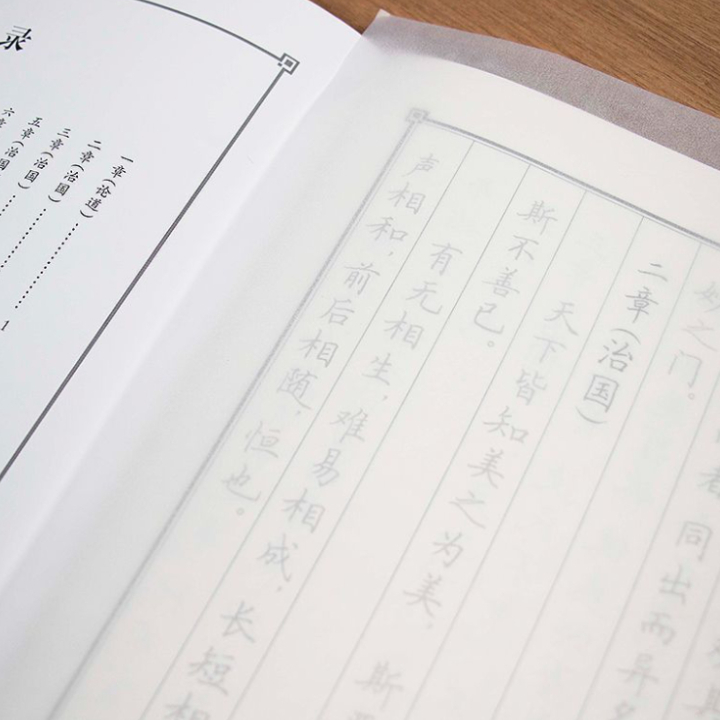 录
一章(论道)………… 1
二章(治国)…………
三章(治国)…………
五章(治国)…………
六章(治国
者同出而异名
妙之门。
二章(治国)
天下皆知美之为美,斯
斯不善已。
有无相生,难易相成,长短相
声相和,前后相随,恒也。